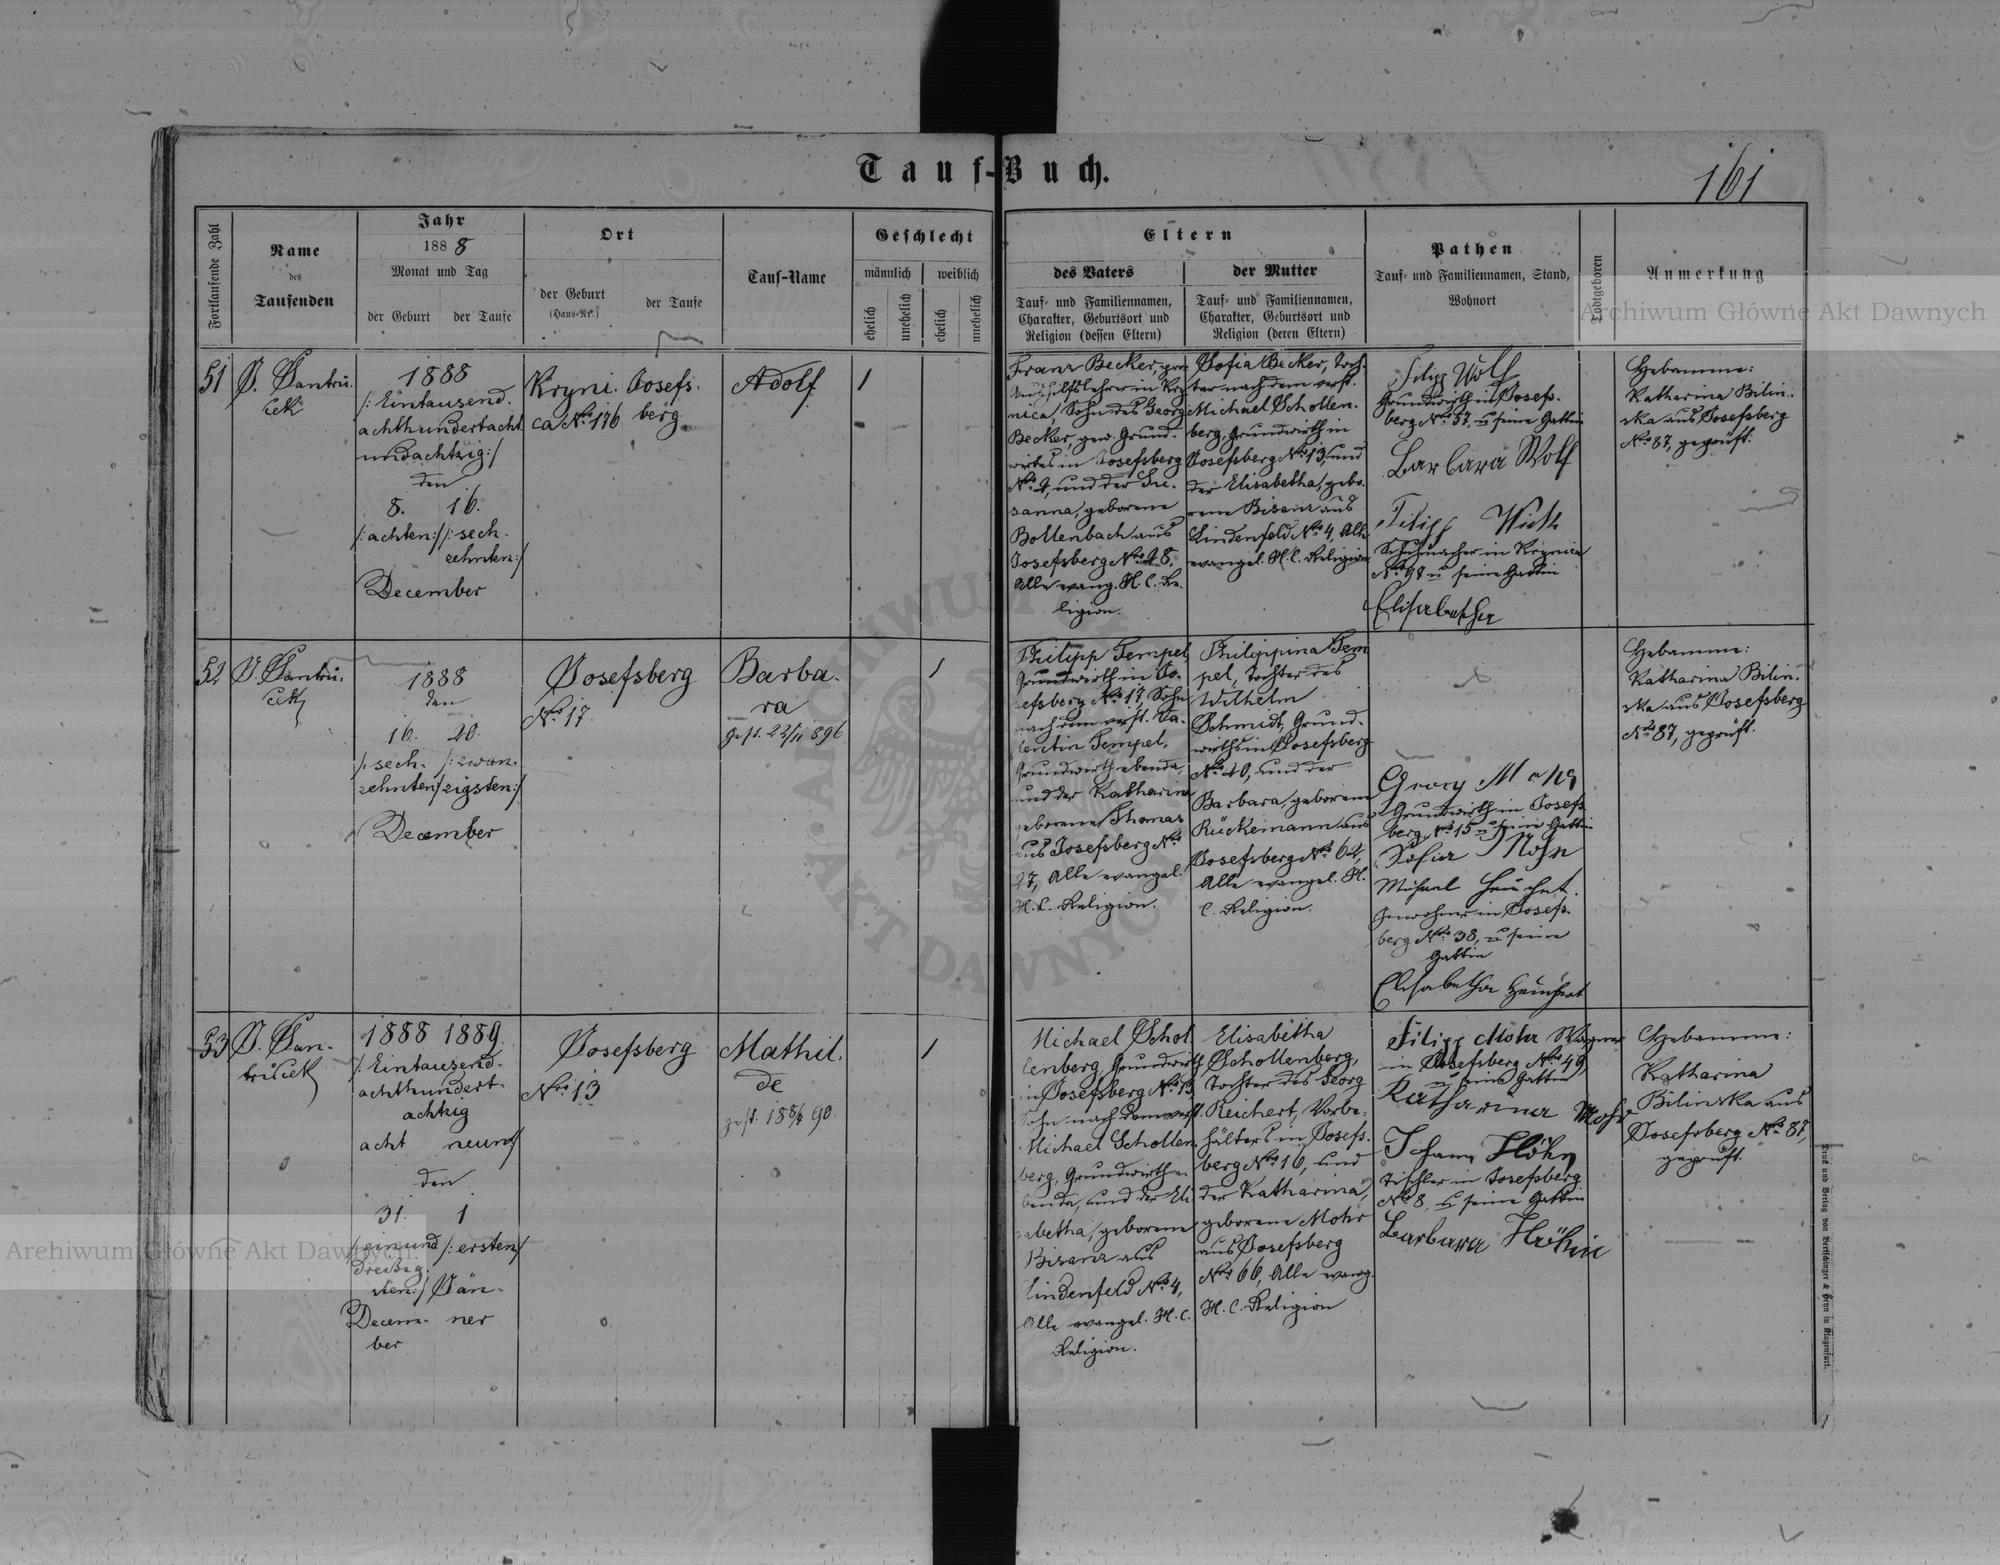 Tauf-Buch.
161
Fortlaufende Zahl
Name
des
Taufenden
Jahr
1888
Monat und Tag
der Geburt
der Taufe
Ort
der Geburt
(Haus-Nr.)
der Taufe
Tauf-Name
Geschlecht
männlich
weiblich
ehelich
unehelich
ehelich
unehelich
Eltern
des Vaters
Tauf- und Familiennamen,
Charakter, Geburtsort und
Religion (dessen Eltern)
der Mutter
Tauf- und Familiennamen,
Charakter, Geburtsort und
Religion (deren Eltern)
Pathen
Tauf- und Familiennamen, Stand,
Wohnort
Todtgeboren
Anmerkung
51
1888
/: Eintausend.
achthundertacht
undachtzig :/
den
8. 16.
/: achten :/ /: sech-
zehnten :/
December
Kryni-
ca No. 176
Josefs-
berg
Adolf
1
Franz Becker,
Aushilfslehrer in Kry
nica, Sohn des Georg
Becker, gew. Grund-
wirtes in Josefsberg
und der Su-
sanna, geborene
Bollenbach aus
Josefsberg
Alle evang. H. C. Re-
ligion.
Sofia Becker, Toch-
ter nach dem verst.
Michael Schollen-
berg, Grundwirth in
Josefsberg No. 13, und
der Elisabetha, gebo-
rene Bisanz aus
Lindenfeld No. 4, Alle
evangel. H. C. Religion
Filipp Wolf
Grundwirth in Josefs-
berg No. 57, u seine Gattin
Barbara Wolf
Filipp
Schuhmacher in Krynica
No. 98 u seine Gattin
Elisabetha
Hebamme:
Katharina Bilin-
ska aus Josefsberg
No. 87, geprüft.
52
1888
den
16. 20.
/: sech- /: zwan-
zehnten/ zigsten :/
December
Josefsberg
No. 17
Barba-
ra
gest. 22/11 896
1
Philipp Tempel,
Grundwirth in Jo-
sefsberg No. 17, Sohn
nach dem verst. Va-
lentin Tempel,
Grundwirth ebenda,
und der Katharina
geborene Thomas
aus Josefsberg No.
27, Alle evangel.
H. C. Religion.
Philippina Tem
pel, Tochter des
Wilhelm
Schmidt, Grund-
wirths in Josefsberg
No. 40, und der
Barbara, geborene
Rückemann aus
Josefsberg No. 62,
Alle evangel. H.
C. Religion.
Georg Mohr
Grundwirth in Josefs
berg No. 15 u seine Gattin
Sofia Mohr
Michael Heuchert.
Inwohner in Josefs-
berg No. 38, u seine
Gattin
Elisabetha Heuchert
Hebamme:
Katharina Bilin-
ska aus Josefsberg
No. 87, geprüft.
53
1888 1889
/: Eintausend.
achthundert-
achtzig
acht neun/
den
31. 1
/: einund /: ersten/
dreißig-
sten :/ Jän-
Decem- ner
ber
Josefsberg
No. 13
Mathil-
de
1
Michael Schol
lenberg, Grundwirth
in Josefsberg No. 13
Sohn nach dem verst.
Michael Schollen
berg, Grundwirth e-
benda, und der Eli-
sabetha, geborene
Bisanz aus
Lindenfeld No. 4,
Alle evangel. H. C.
Religion.
Elisabetha
Schollenberg,
Tochter des Georg
Reichert, Vorbe-
hälters in Josefs-
berg No. 16, und
der Katharina,
geborene Mohr
aus Josefsberg
No. 66, Alle evang.
H. C. Religion
Filipp Mohr Wagner
in Josefsberg No. 49,
u seine Gattin
Katharina Mohr
Johann Höhn
Tischler in Josefsberg
No. 8, u seine Gattin
Barbara Höhn
Hebamme:
Katharina
Bilinska aus
Josefsberg No. 87,
geprüft.
Druck und Verlag von Bertschinger & Heyn in Klagenfurt.
Archiwum Główne Akt Dawnych
Archiwum Główne Akt Dawnych
ARCHIWUM
AKT DAWNYCH